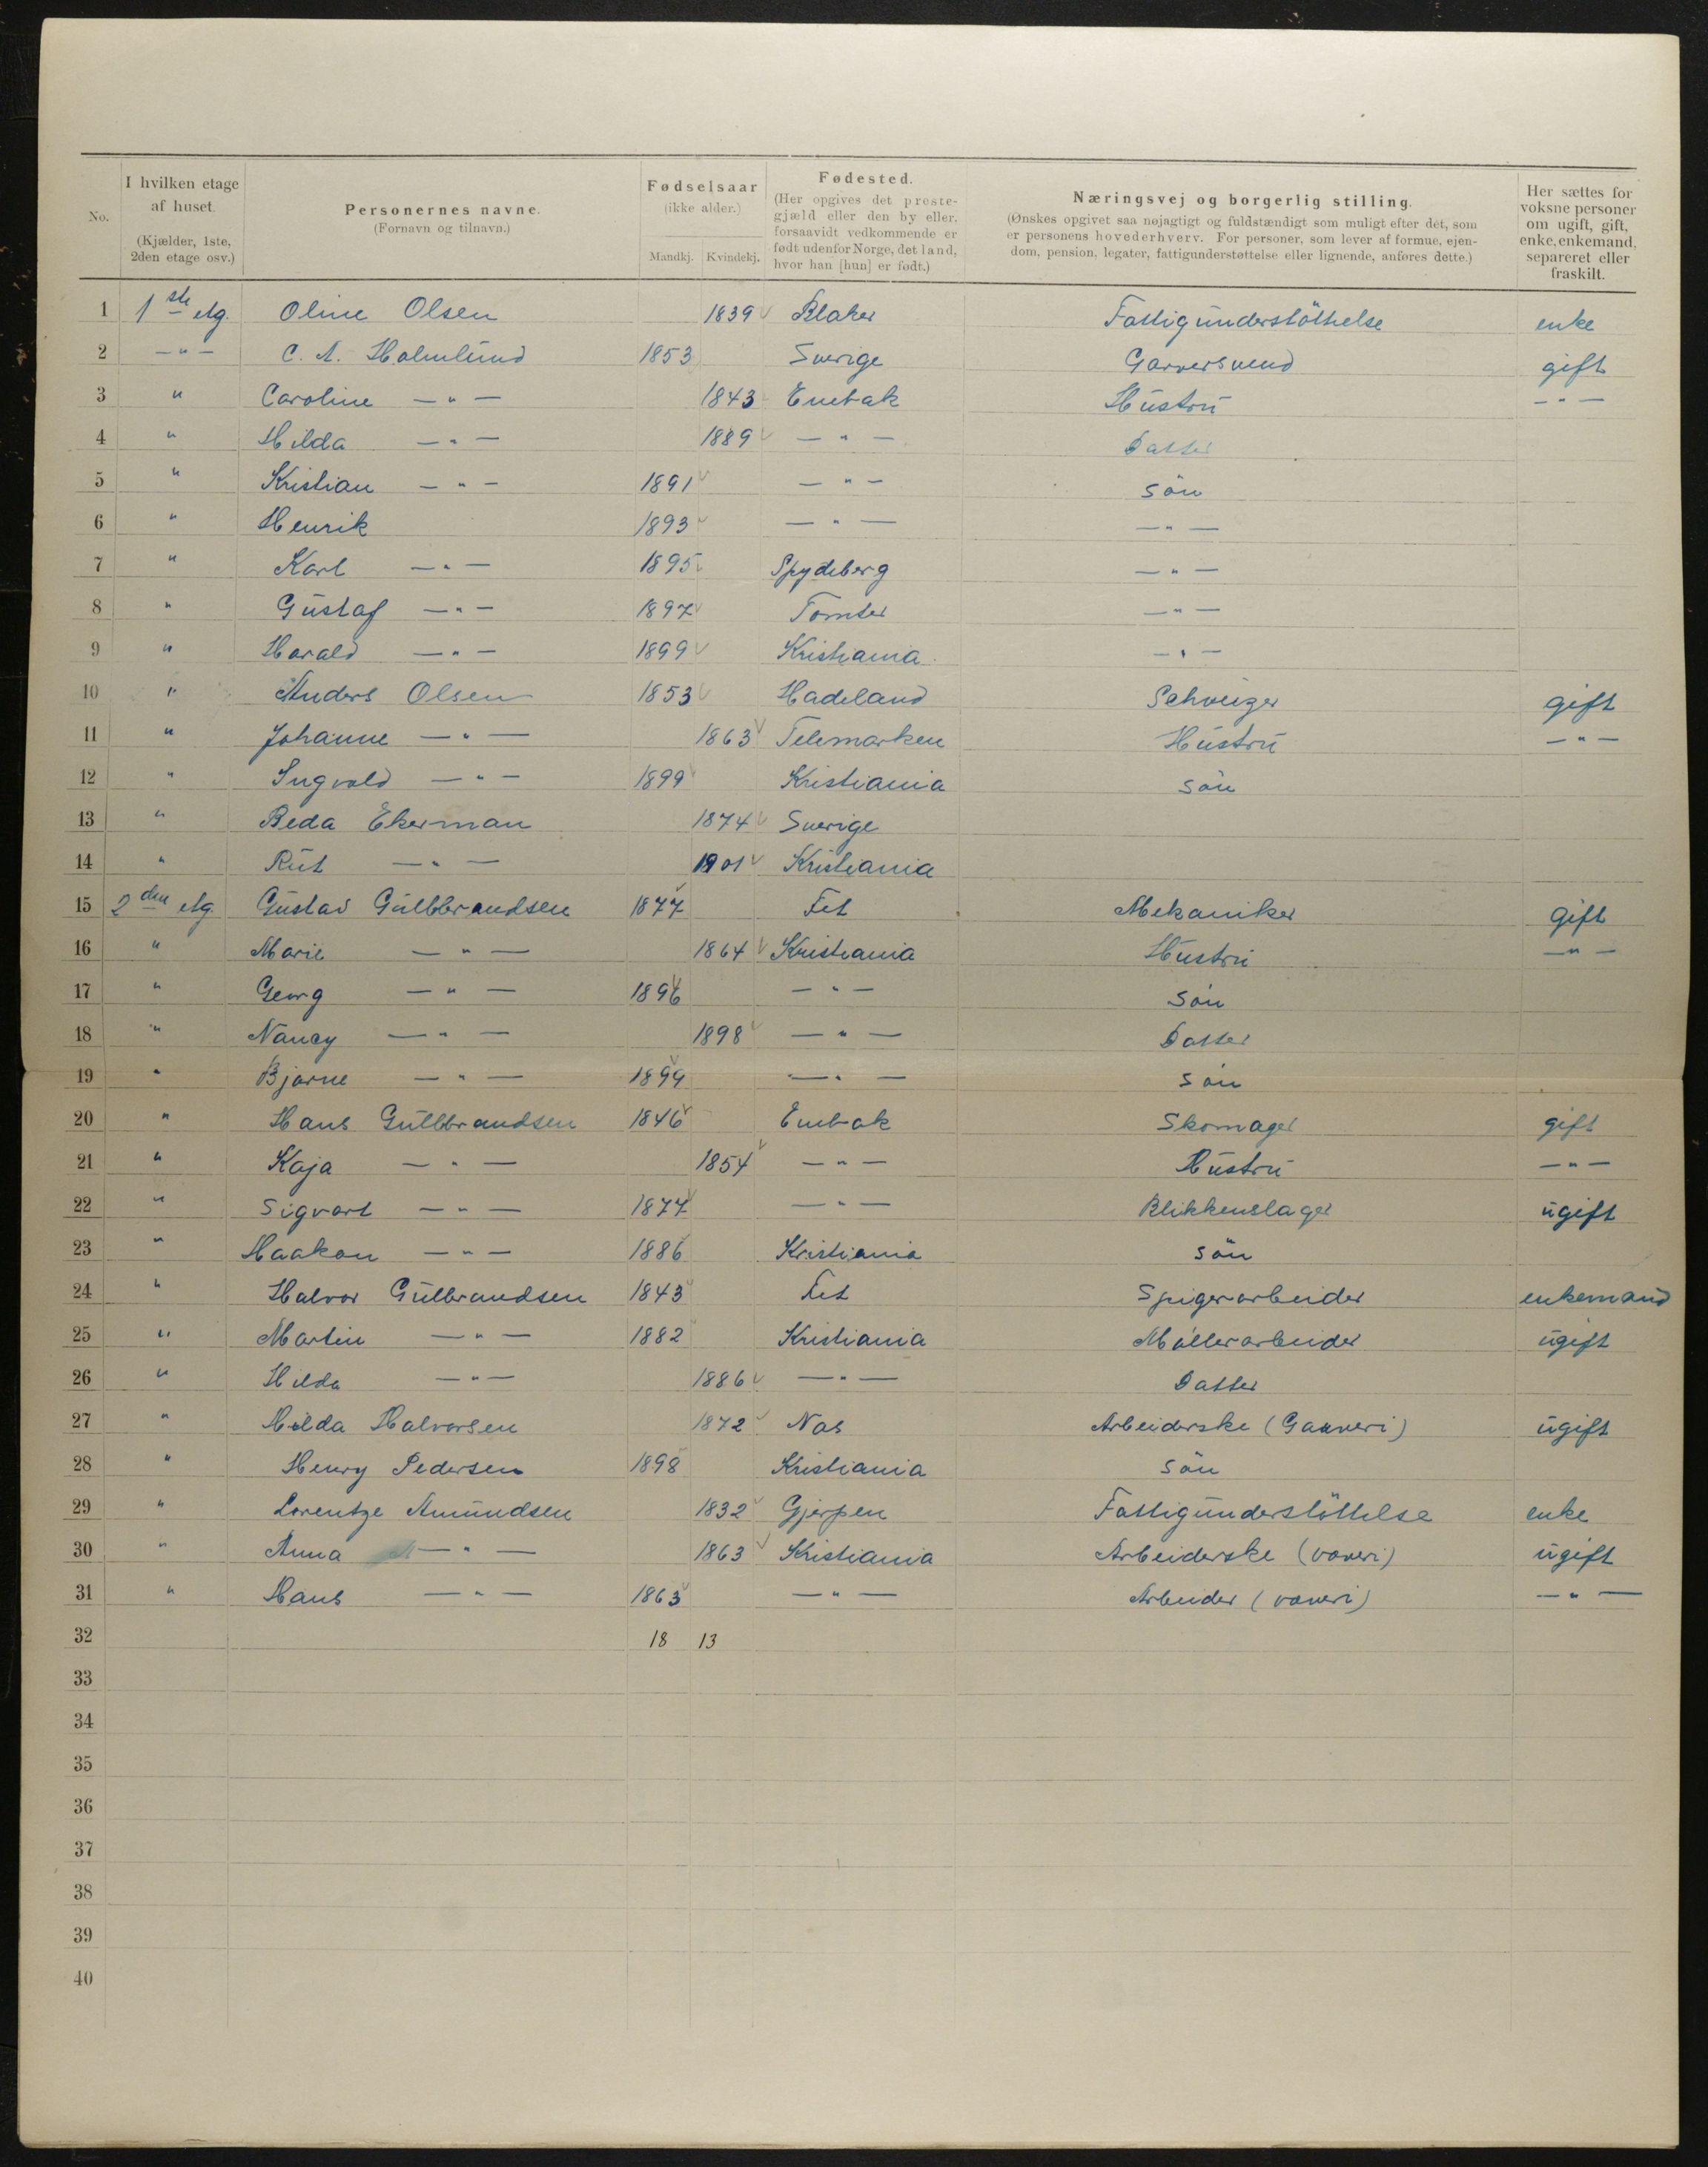 No.
I hvilken etage af huset. (Kjælder, 1ste, 2den etage osv.)
Personernes navne. (Fornavn og tilnavn.)
Fødselsaar (ikke alder.) Mandkj. Kvindekj.
Fødested. (Her opgives det prestegjæld eller den by eller, forsaavidt vedkommende er født udenfor Norge, det land, hvor han [hun] er født.)
Næringsvej og borgerlig stilling. (Ønskes opgivet saa nøjagtigt og fuldstændigt som muligt efter det, som er personens hovederhverv. For personer, som lever af formue, ejendom, pension, legater, fattigunderstøttelse eller lignende, anføres dette.)
Her sættes for voksne personer om ugift, gift, enke, enkemand, separeret eller fraskilt.
1 1ste etg. Oline Olsen 1839 Blaker Fattigunderstöttelse enke
2 —"— C. A. Holmlund 1853 Sverige Garversvend gift
3 " Caroline —"— 1843 Enebak Hustru —"—
4 " Hilda —"— 1889 —"— Datter
5 " Kristian —"— 1891 —"— sön
6 " Henrik 1893 —"— —"—
7 " Karl —"— 1895 Spydeberg —"—
8 " Gustaf —"— 1897 Tomter —"—
9 " Harald —"— 1899 Kristiania —"—
10 " Anders Olsen 1853 Hadeland Schveizer gift
11 " Johanne —"— 1863 Telemarken Hustru —"—
12 " Ingvald —"— 1899 Kristiania sön
13 " Beda Ekerman 1874 Sverige
14 " Rut —"— 1901 Kristiania
15 2den etg. Gustav Gulbbrandsen 1877 Fet Mekaniker gift
16 " Marie —"— 1864 Kristiania Hustru —"—
17 " Georg —"— 1896 —"— sön
18 " Nancy —"— 1898 —"— Datter
19 " Bjarne —"— 1899 —"— sön
20 " Hans Gulbbrandsen 1846 Enebak Skomager gift
21 " Kaja —"— 1854 —"— Hustru —"—
22 " Sigvart —"— 1877 —"— Blikkenslager ugift
23 " Haakon —"— 1886 Kristiania sön
24 " Halvor Gulbrandsen 1843 Fet Spigerarbeider enkemand
25 " Martin —"— 1882 Kristiania Möllerarbeider ugift
26 " Hilda —"— 1886 —"— Datter
27 " Hilda Halvorsen 1872 Nas Arbeiderske (Garveri) ugift
28 " Henry Pedersen 1898 Kristiania sön
29 " Lorentze Amundsen 1832 Gjerpen Fattigunderstöttelse enke
30 " Anna —"— 1863 Kristiania Arbeiderske (vaveri) ugift
31 " Hans —"— 1863 —"— Arbeider (vaveri) —"—
32 18 13
33
34
35
36
37
38
39
40